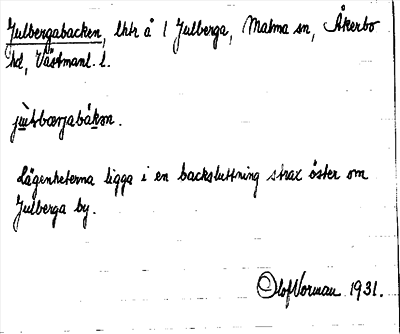 Julbergabacken, lhtr å 1 Julberga, Malma sn, Åkerbo
hd, Västmanl. l.
Lägenheterna ligga i en backsluttning strax öster om
Julberga by.
Olof Norman 1931.